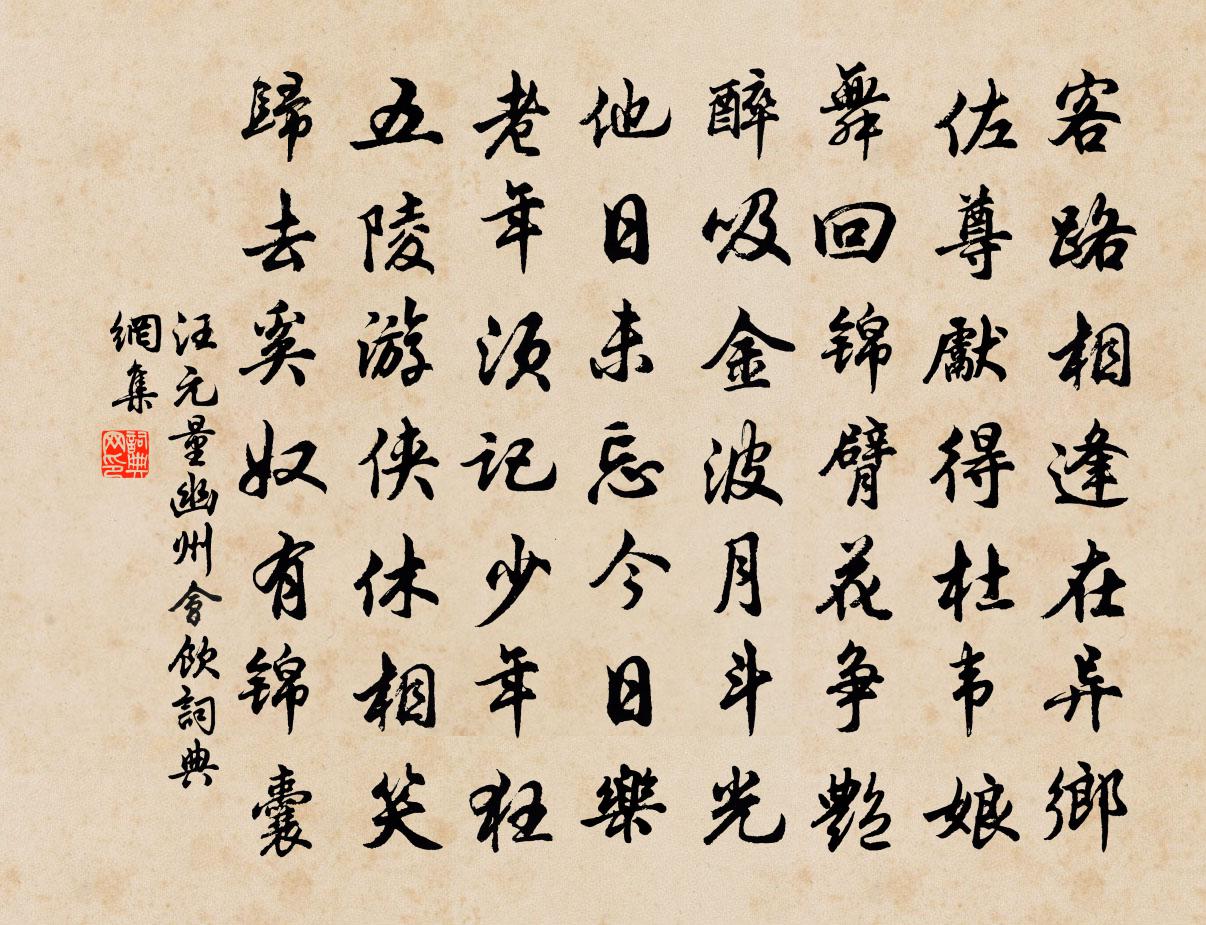 客路相逢在异鄉
佐尊獻得杜韦娘
舞回锦臂花争艷
醉吸金波月斗光
他日未忘今日樂
老年须记少年狂
五陵游侠休相笑
歸去奚奴有锦囊
汪元量幽州會飲詞典
網集
詞典
网印